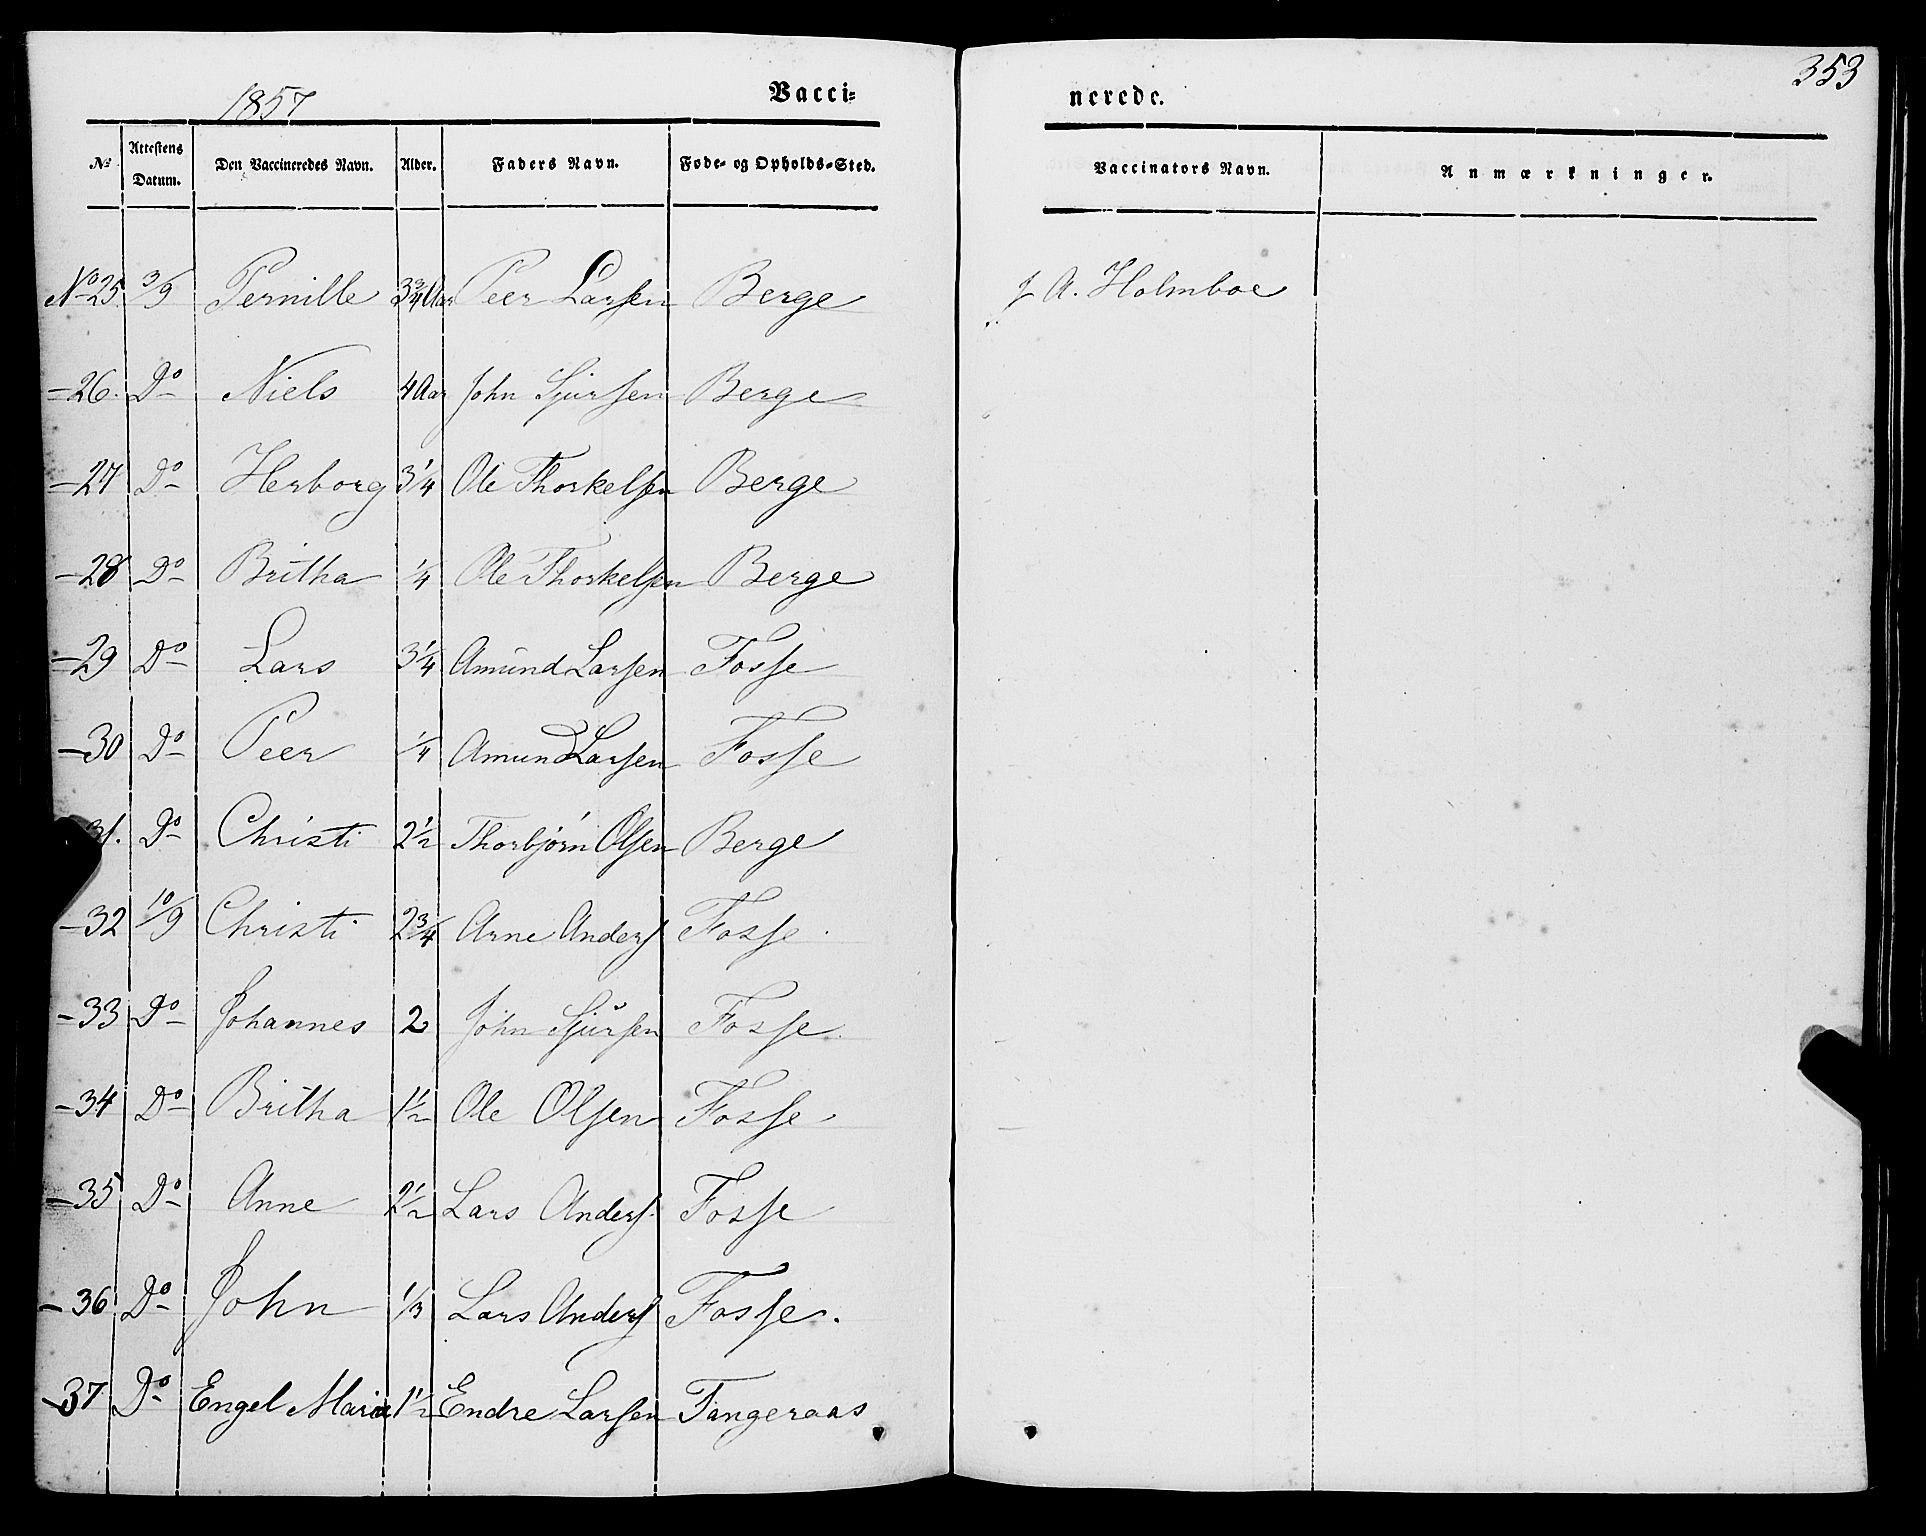 353
1857 Vacci= nerede.
No Attestens Datum. Den Vaccineredes Navn. Alder. Faders Navn. Føde- og Opholds-Sted. Vaccinators Navn. Anmærkninger.
No 25 3/9 Pernille 3 3/4 Aar Peer Larsen Berge A. Holmboe
— 26. Do Niels 4 Aar John Sjursen Berge
— 27 Do Herborg 3 1/4 Ole Thorkelsen Berge
— 28 Do Britha 1/4 Ole Thorkelsen Berge
— 29 Do Lars 3 1/4 Amund Larsen Fosse
— 30 Do Peer 1/4 Amund Larsen Fosse
31. Do Christi 2 1/2 Thorbjørn Olsen Berge
— 32 10/9 Christi 2 3/4 Arne Anders Fosse.
— 33 Do Johannes 2 John Sjursen Fosse.
— 34 Do Britha 1 1/2 Ole Olsen Fosse
— 35 Do Anne 2 1/2 Lars Anders. Fosse
— 36 Do John 1/3 Lars Anders Fosse.
— 37 Do Engel Maria 1 1/2 Endre Larsen Tangeraas